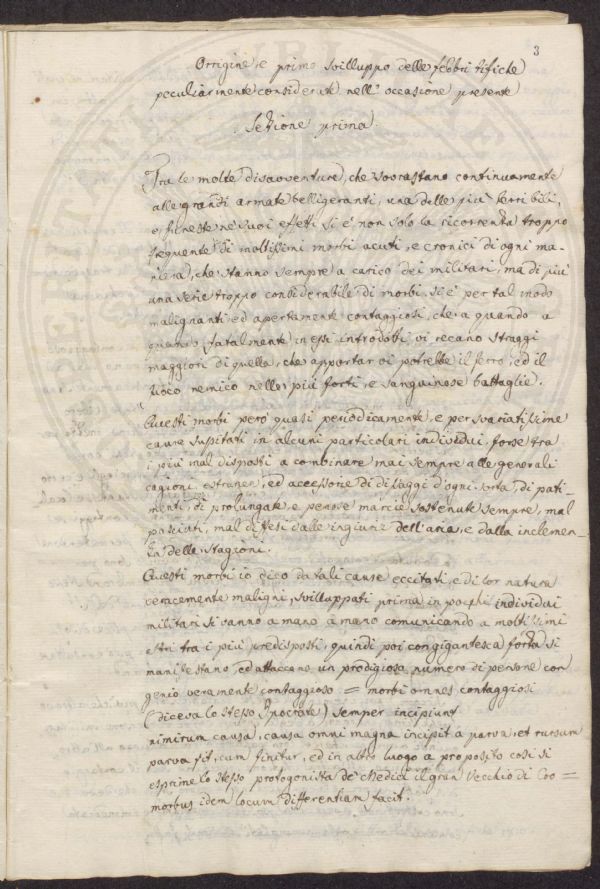 3
Origine, e primo sviluppo delle febbri tifiche
peculiarmente considerate nell' occasione presente
Sezione prima.
Tra le molte disavventure, che sovrastano continuamente
alle grandi armate belligeranti, una delle più terribili,
e funeste ne' suoi effetti si è non solo la ricorrenza troppo
frequente di moltissimi morbi acuti, e cronici di ogni ma-
niera, che stanno sempre a carico dei militari, ma di più
una serie troppo considerabile di morbi, si è per tal modo
malignanti ed apertamente contagiosi, che a quando a
quando (fatalmente) in essi introdobi, vi recano straggi
maggiori di quella, che apportar vi potrebbe il ferro, ed il
fuoco nemico nelle più forti, e sanguinose battaglie.
Questi morbi però quasi perioddicamente, e per svariatissime
cause susitati in alcuni particolari individui, forse tra
i più mal disposti a combinare mai sempre alle generali
cagioni, estranee, ed accessorie di disaggi d'ogni sorta, di pati-
menti, di prolungate, e penose marcie sostenute sempre, mal
pasciuti, mal difesi dalle ingiurie dell'aria, e dalla inclemen-
za delle stagioni.
Questi morbi io dico da tali cause eccitati, e di lor natura
veracemente maligni, sviluppati prima in pochi individui
militari si vanno a mano a mano comunicando a moltissimi
altri tra i più predisposti, quindi poi con gigantesca forza si
manifestano, ed attaccono un prodigioso numero di persone con
genio veramente contaggioso = morbi omnes contaggiosi
(diceva lo stesso Ipocrate) semper incipiunt
nimirum causa, causa omni magna incipit a parva, et rursum
parva fit, cum finitur, ed in altro luogo a proposito così si
esprime lo stesso protogonista de' Medici il gran Vecchio di Coo =
morbus idem locum differentiam facit.